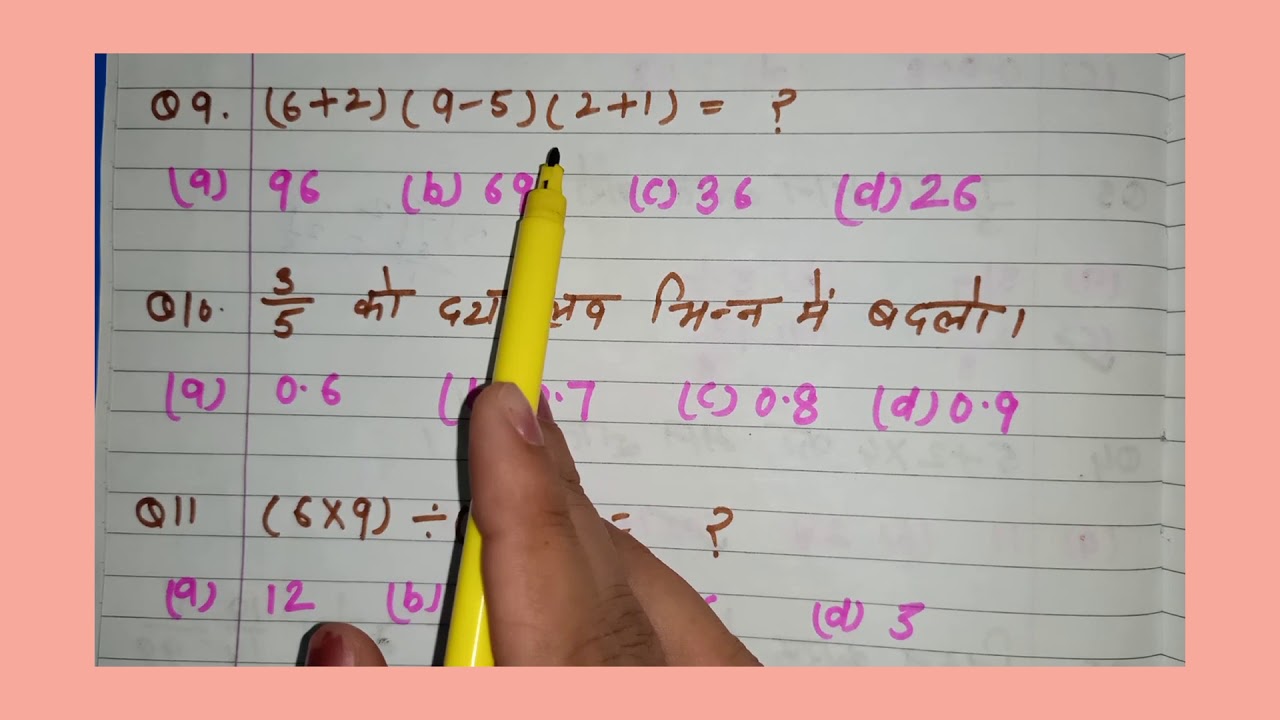 Q9. (6+2)(9-5)(2+1) = ?
(a) 96 (b) 69 (c) 36 (d) 26
Q10. 3/5 को भिन्न में बदलो।
(a) 0.6 0.7 (c) 0.8 (d) 0.9
Q11 (6×9) ÷ = ?
(a) 12 (b) (d) 3